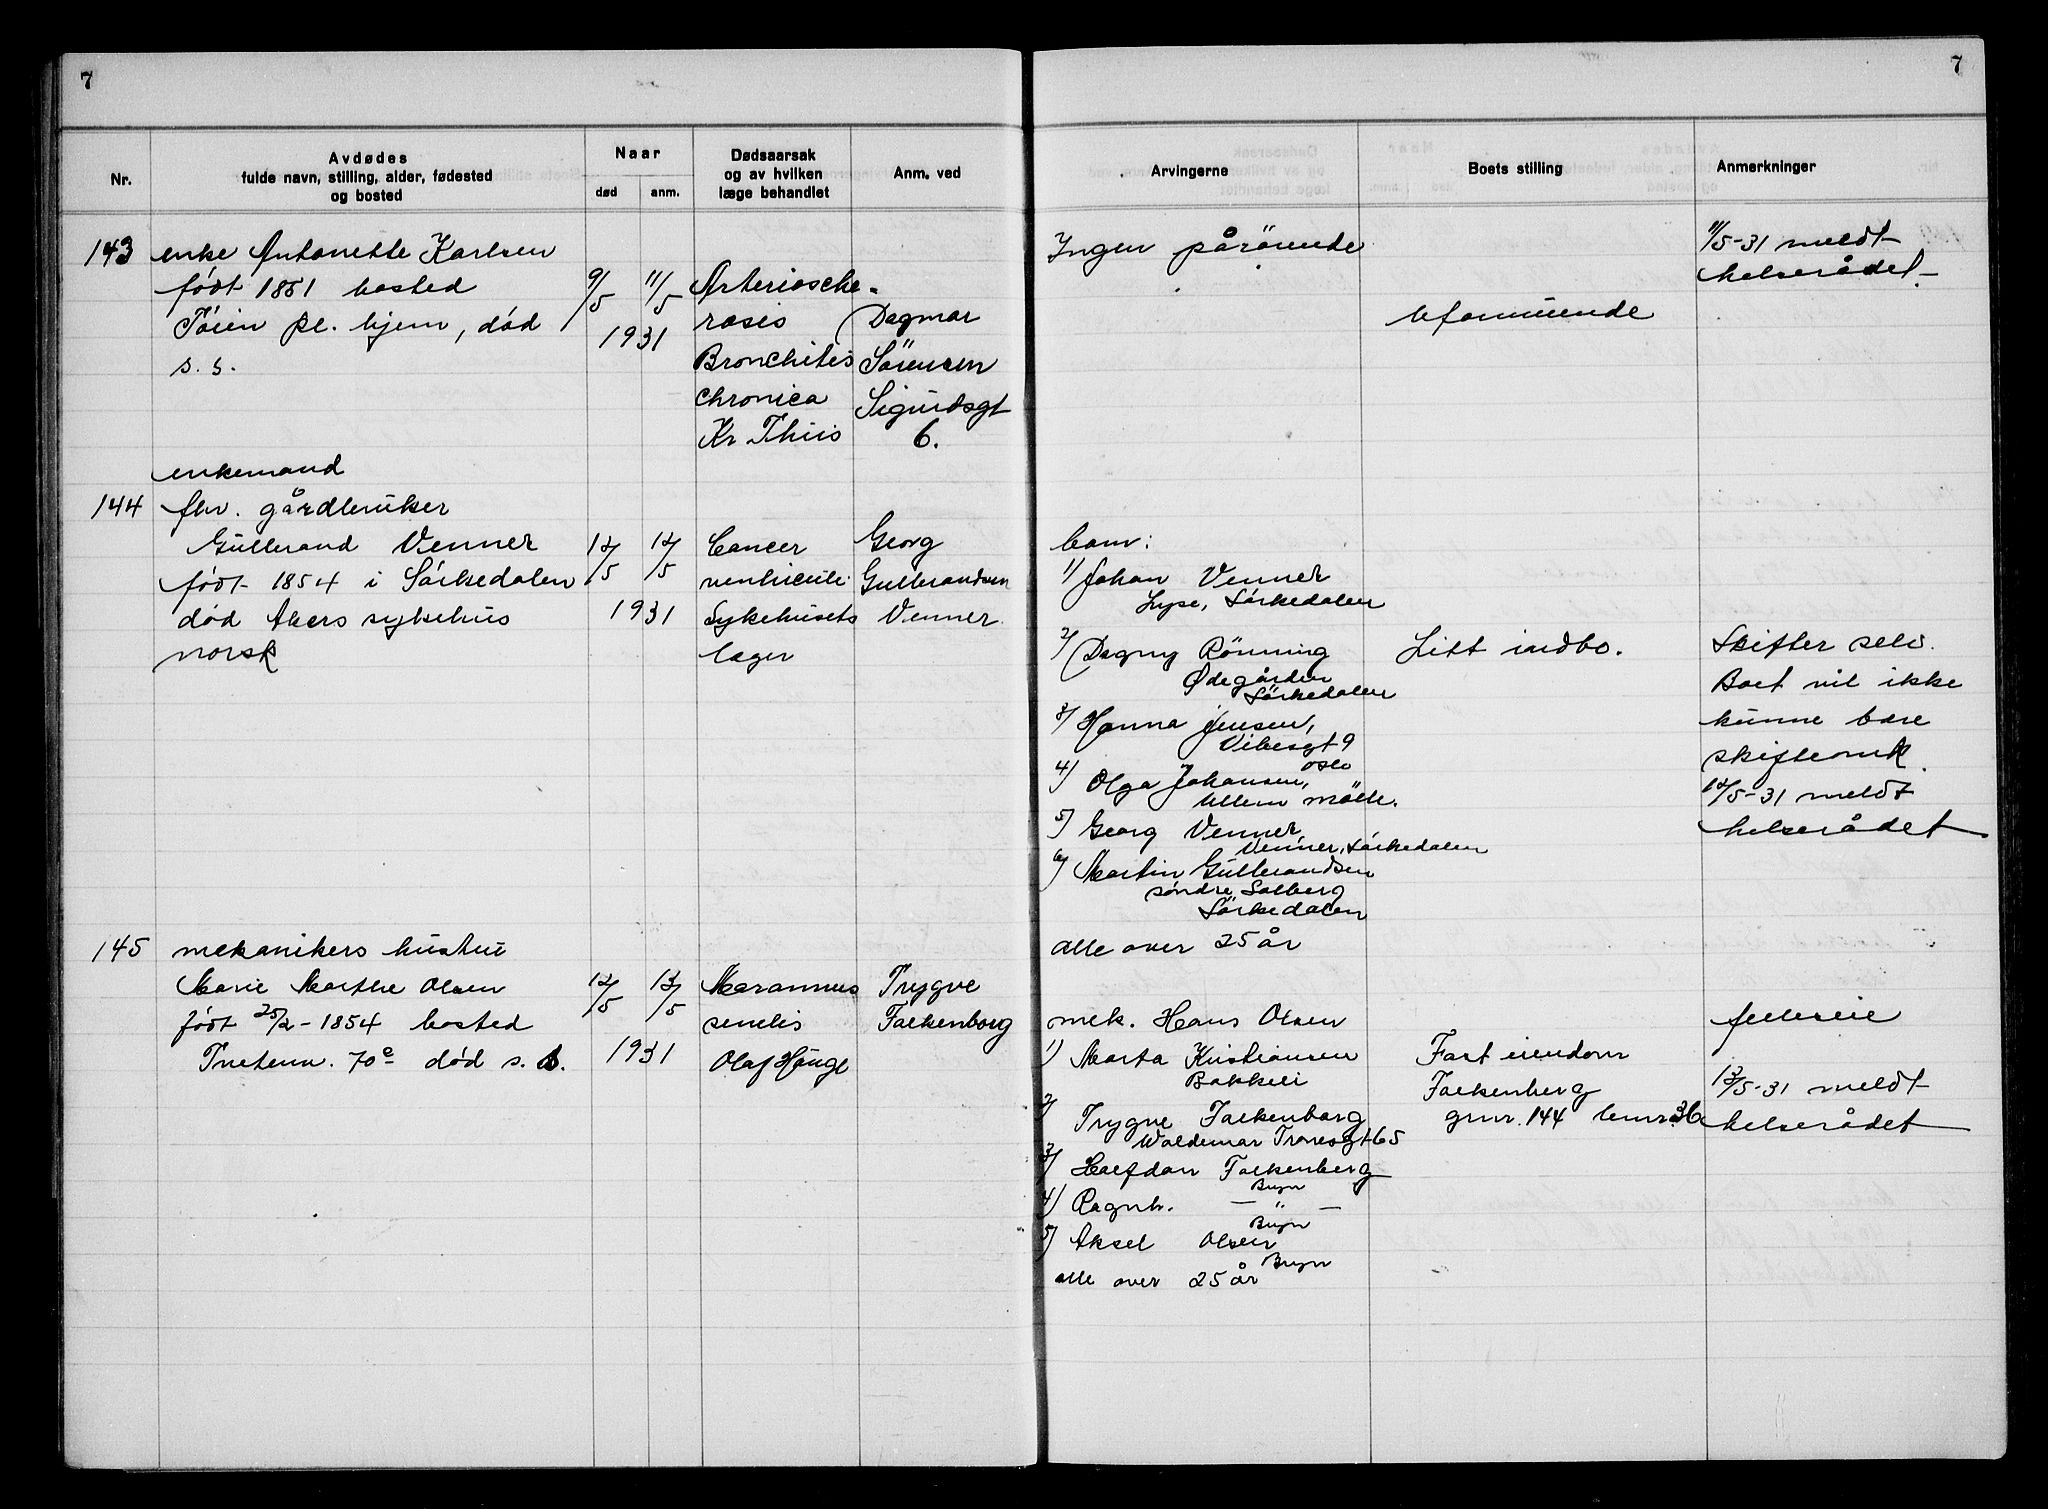 7
7
Nr.
Avdødes
fulde navn, stilling, alder, fødested
og bosted
Naar
død
anm.
Dødsaarsak
og av hvilken
læge behandlet
Anm. ved
Arvingerne
Boets stilling
Anmerkninger
143
enke Antonette Karlsen
født 1851 bosted
Töien pl. hjem, död
s. s.
9/5
11/5
1931
Arterioscle-
rosis
Bronchitis
chronica
Kr Thiis
Dagmar
Sörensen
Sigurdsgt
6.
Ingen pårörende
Uformuende
11/5-31 meldt
helserådet.
enkemand
144
fhv. gårdbruker
Gulbrand Venner
født 1854 i Sörkedalen
død Akers sykehus
norsk
12/5
12/5
1931
Cancer
ventriculi
Sykehusets
læger
Georg
Gulbrandsen
Venner
barn:
1) Johan Venner
Lyse, Sörkedalen
2) Dagny Rönning
Ødegården
Sörkedalen
3) Hanna Jensen,
Vibesgt 9
Oslo
4) Olga Johansen,
Ullern mölle.
5) Georg Venner,
Venner, Sörkedalen
6) Martin Gulbrandsen
söndre Solberg
Sörkedalen
alle over 25 år
Litt indbo.
Skifter selv.
Boet vil ikke
kunne bære
skifteomk.
12/5-31 meldt
helserådet
145
mekanikers hustru
Marie Marthe Olsen
født 25/2-1854 bosted
Tvetenv. 70e död s. s.
12/5
13/5
1931
Marasmus
senilis
Olaf Hauge
Trygve
Falkenborg
mek. Hans Olsen
1) Marta Kristiansen
Bakkeli
2) Trygve Falkenborg
Waldemar Tranesgt 65
3) Halfdan Falkenberg
Bryn
4) Ragnh. — " —
Bryn
5) Aksel Olsen
Bryn
alle over 25 år
Fast eiendom
Falkenberg
grnr. 144 brnr. 36
felleseie
13/5-31 meldt
helserådet